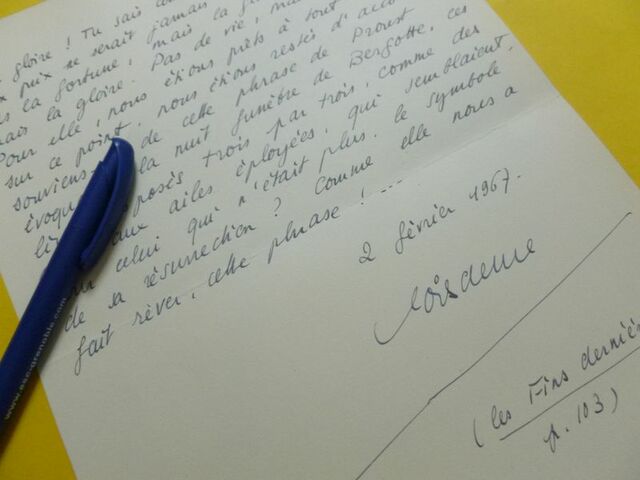 gloire ! Tu sais
prix se serait jamais
la fortune, mais la
mais la gloire. Pas de vie,
Pour elle, nous étions prêts à tout
sur ce point, nous étions restés d'acco
souviens- de cette phrase de Proust
évoqu la nuit funèbre de Bergotte, ces
li posés trois par trois, comme des
aux ailes éployées, qui semblaient,
celui qui n'était plus, le symbole
de sa résurrection ? Comme elle nous a
fait rêver, cette phrase ! ...
2 février 1967.
(les Fins derniè
p. 103)